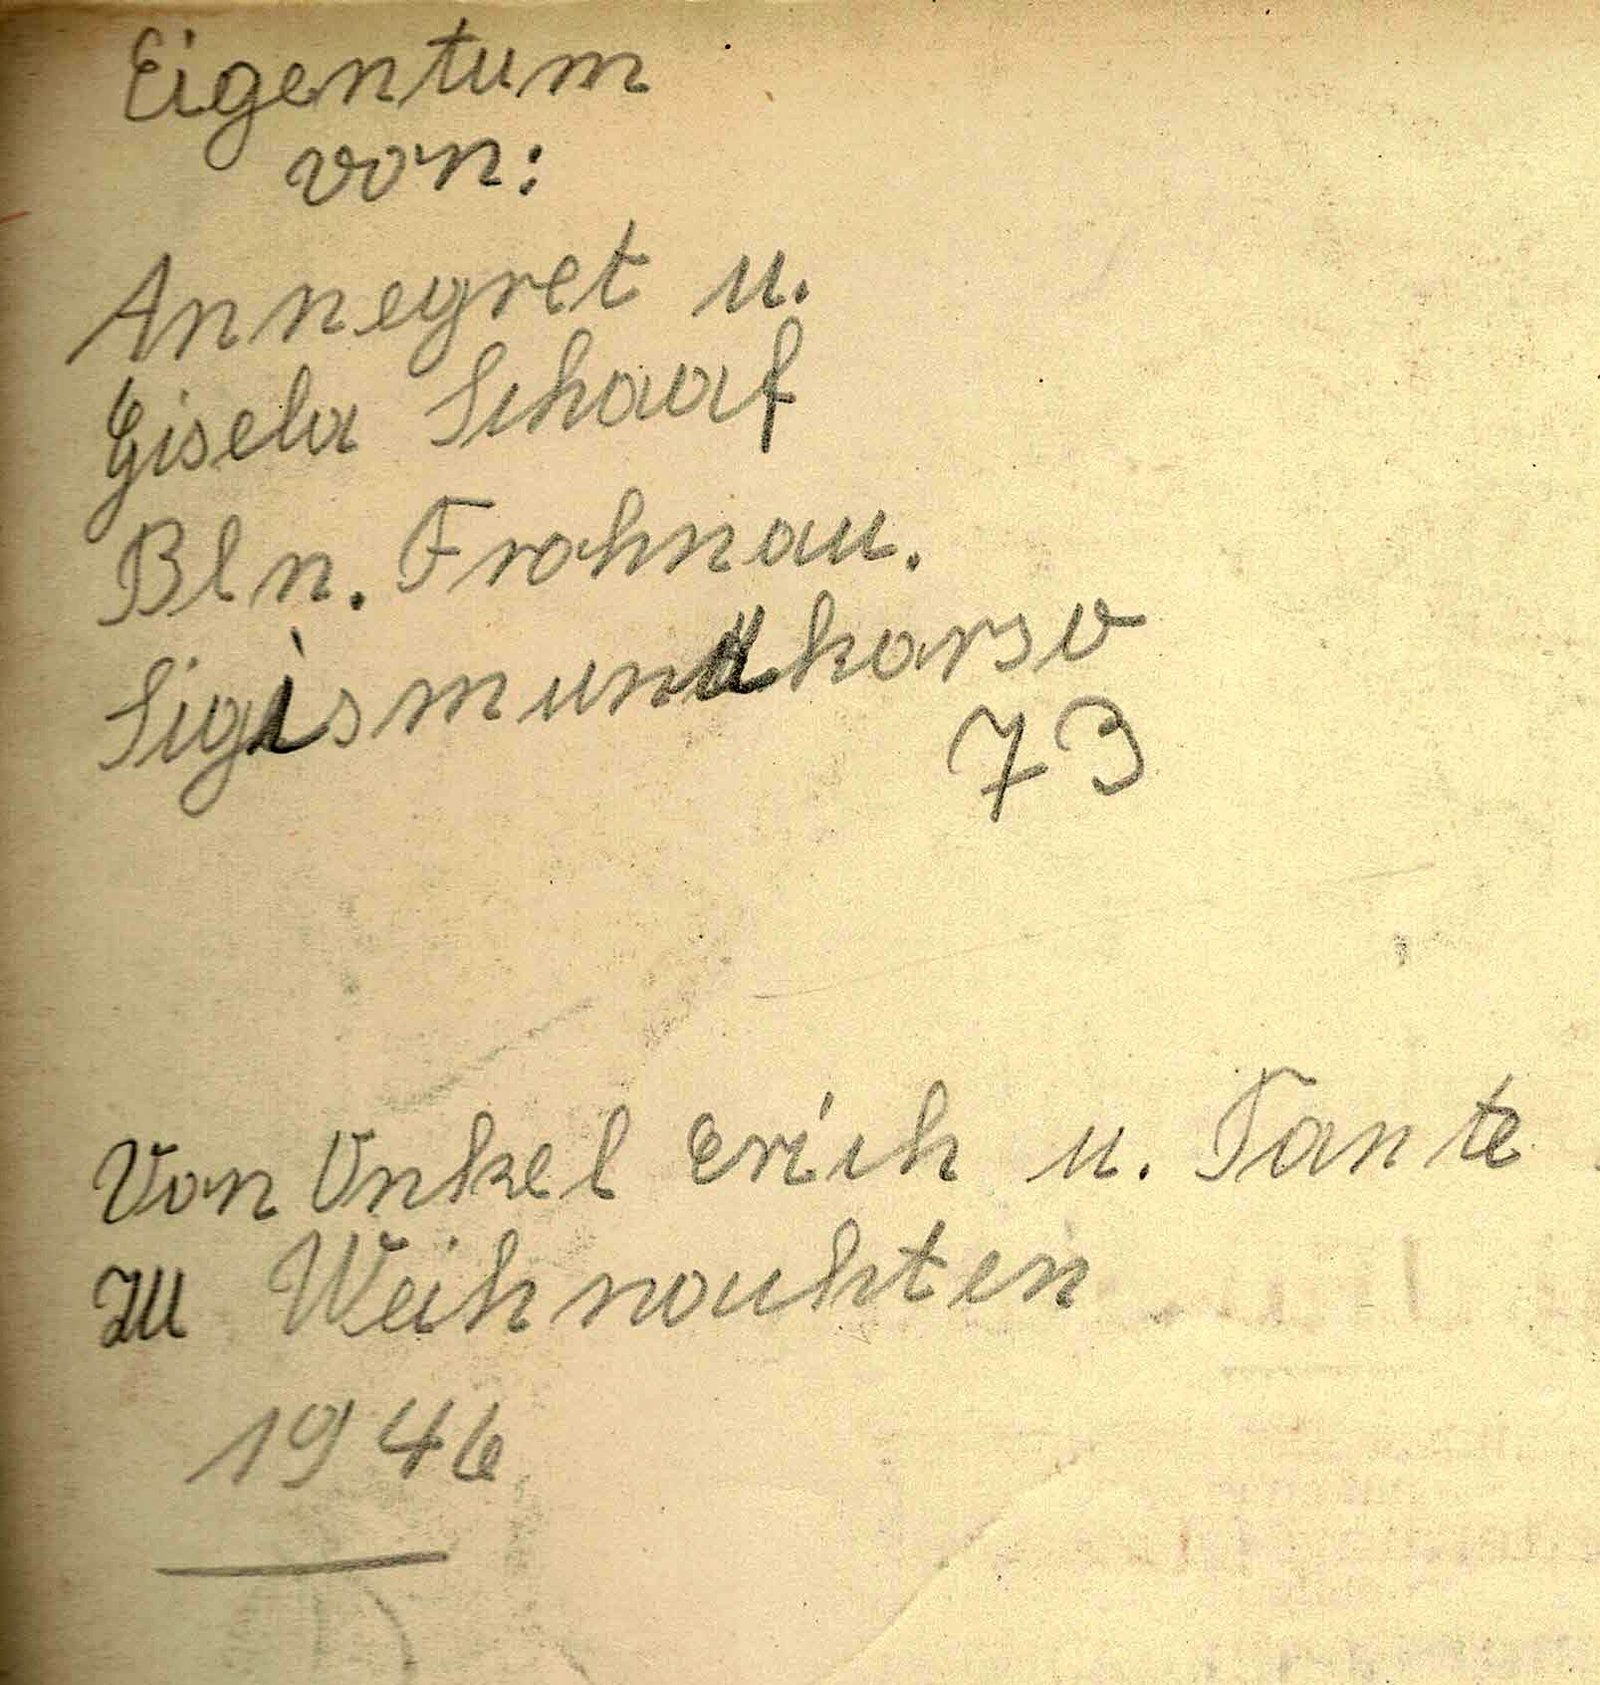 Eigentum
von:
Annegret u.
Gisela Schaaf
Bln. Frohnau.
Sigismundkorso
73
Von Onkel Erich u. Tante
zu Weihnachten
1946